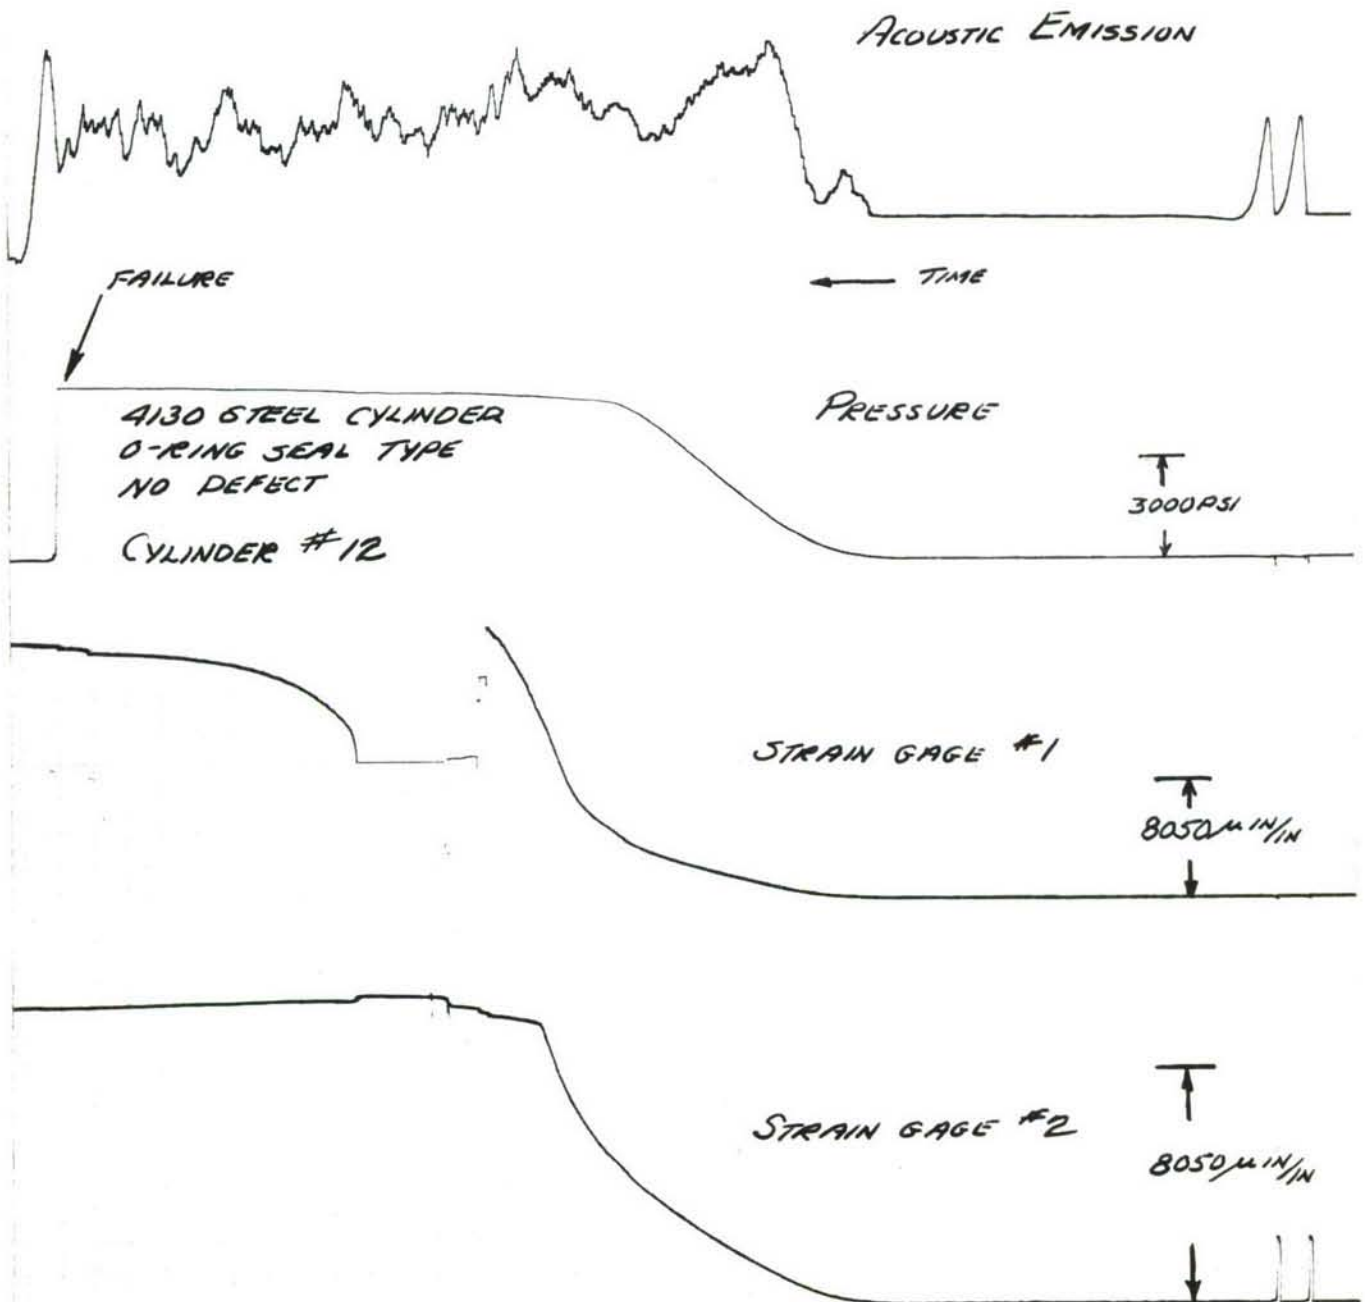 ACOUSTIC EMISSION
FAILURE
← TIME
4130 STEEL CYLINDER
O-RING SEAL TYPE
NO DEFECT
CYLINDER #12
PRESSURE
3000 PSI
STRAIN GAGE #1
8050 μ IN/IN
STRAIN GAGE #2
8050 μ IN/IN